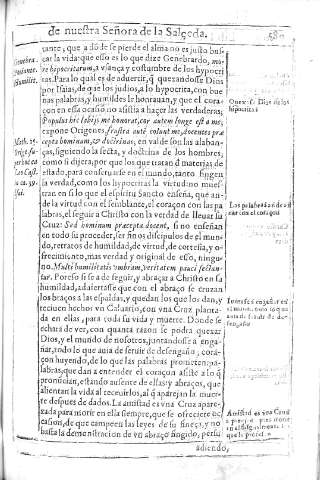 de nuestra Señora de la Salceda.
tante, que a dō de se pierde el alma no es justo bus
car la vida: que esso es lo que dize Genebrardo, mo-
re hypocritarum, a vsança y costumbre de los hypocri
tas. Para lo qual es de aduertir, q̄ quexandose Dios
por Isaias, de que los judios, a lo hypocrita, con bue
nas palabras, y humildes le honrauan, y que el cora
con en essa ocasiō no assistia a hazer las verdaderas;
Populus hic labijs me honorat, cor autem longe est a me;
expone Origenes, frustra autē colunt me, docentes præ
cepta hominum, & doctrinas, en valde son las alaban-
ças, siguiendo la secta, y doctrina de los hombres;
como si dijera, por que los que tratan d̄ materias de
estado, para conseruarse en el mundo, tanto fingen
la verdad, como los hypocritas la virtud: no mues-
tran en si lo que el espiritu Sancto enseña, que an-
de la virtud con el semblante, el coraçon con las pa
labras, el seguir a Christo con la verdad de lleuar su
Cruz: Sed hominum præcepta docent, si no enseñan
en todo su proceder, ser finos discipulos de el mun
do, retratos de humildad, de virtud, de cortesia, y o-
frecimiento, mas verdad y original de esso, ningu-
no. Multi humilitatis vmbram, veritatem pauci sectan-
tur. Por esso si se a de seguir, y abraçar a Christo en su
humildad, adaiertase que con el abraço se cruzan
los braços a las espaldas, y quedan los que los dan, y
reciuen hechos vn Caluario, con vna Cruz planta-
da en ellas, para toda su vida y muerte. Donde se
echará de ver, con quanta razon se podra quexar
Dios, y el mundo de nosotros, juntandose a enga-
ñar, todo lo que auia de seruir de desengaño, cora-
çon huyendo, de lo que las palabras prometen: pa-
labras, que dan a entender el coraçon assiste a lo q̄
pronūcian, estando ausente de ellas: y abraços, que
alientan la vida al receuirlos, al q̄ aparejan la muer-
te despues de dados. La amistad es vna Cruz apare-
jada para morir en ella siempre, que se ofreciere oc
casion, de que campeen las leyes de su fineça, y no
basta la demonstracion de vn abraço fingido, persu
adiendo,
Genebra.
Humilis.
Math. 15.
Quexase Dios de los
hypocritas
Las palabras an de an
dar con el coraçon
Amistad es vna Cruz